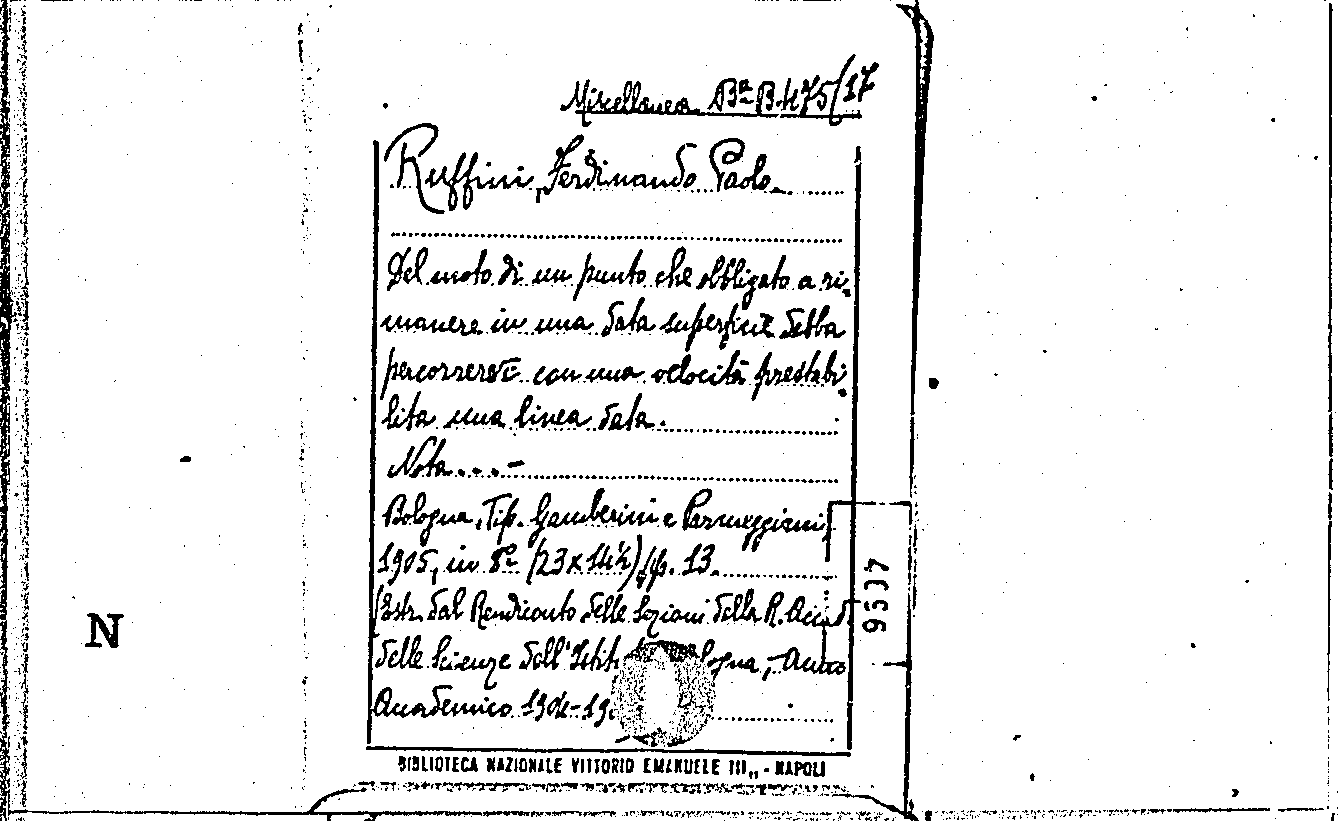 Miscellanea Bª B.475/17
Ruffini, Ferdinando Paolo
Del moto di un punto che obbligato a ri-
manere in una data superficie debba
percorrere con una velocità prestabi-
lita una linea data.
Nota...-
Bologna, Tip. Gamberini e Parmeggiani,
1905, in 8º (23x14½) p. 13.
(Estr. dal Rendiconto delle Sezioni della R. Accad.
delle Scienze dell'Istit
Anno
Accademico 1904-19
BIBLIOTECA NAZIONALE VITTORIO EMANUELE III„ - NAPOLI
N